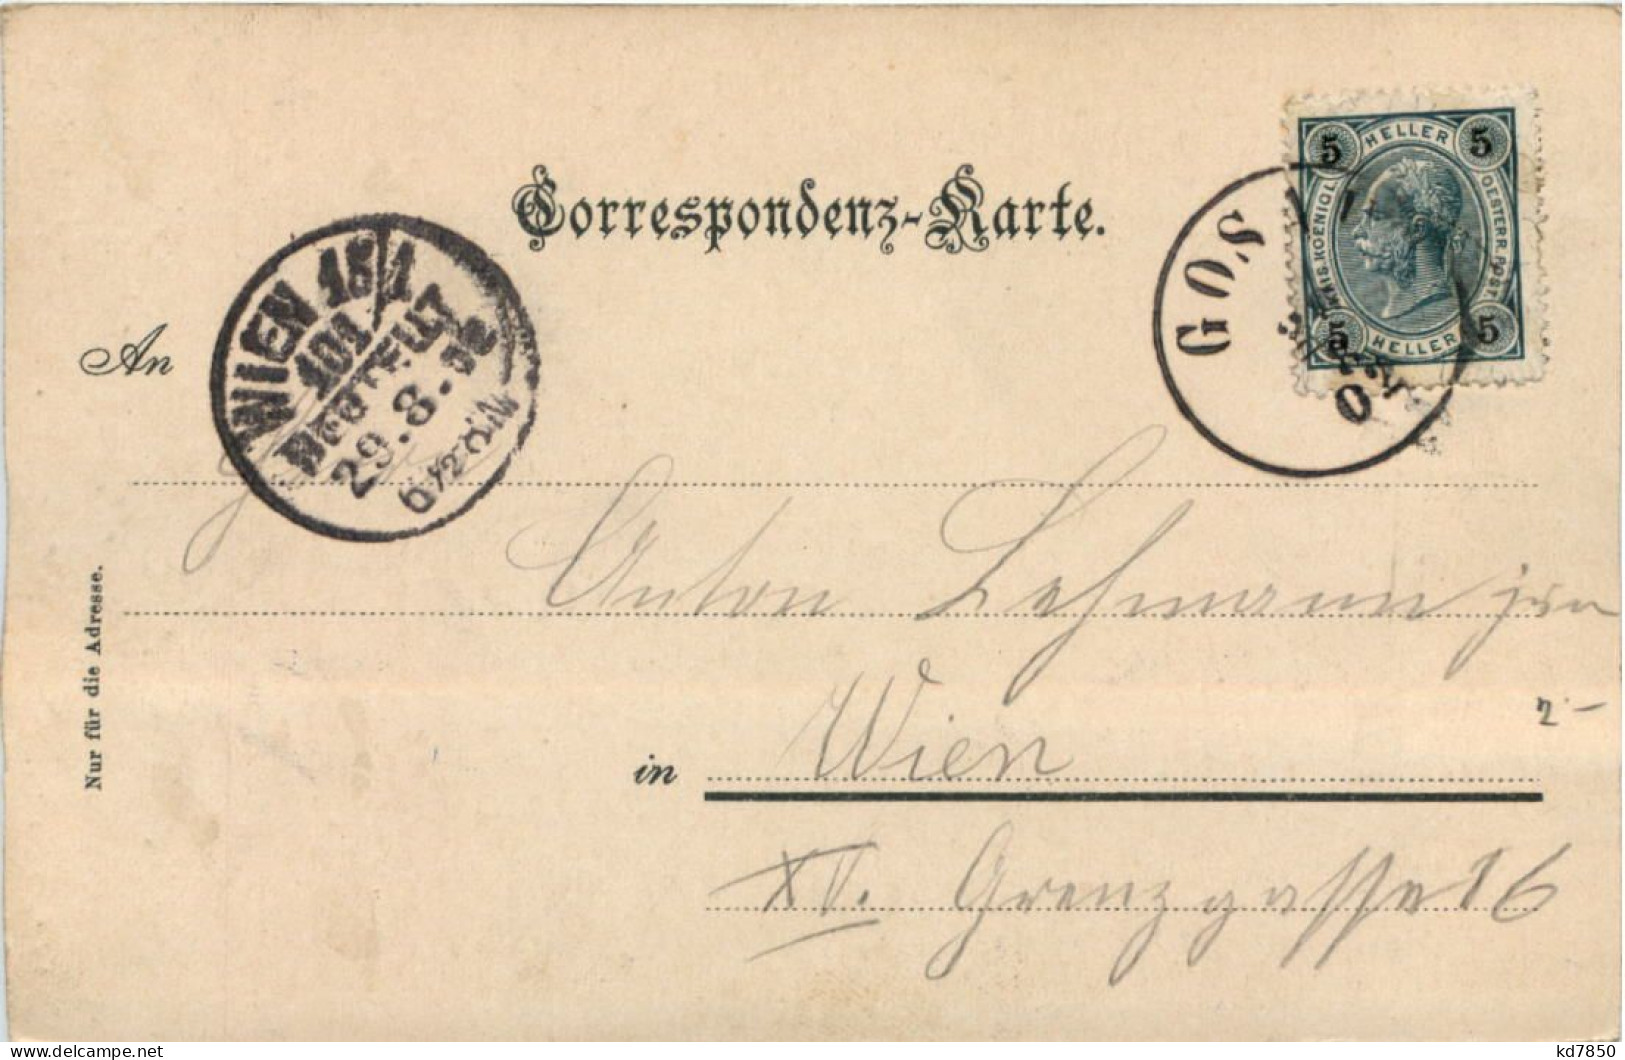 Correspondenz-Karte.
HELLER
5 5
KAIS. KOENIGL.
OESTERR. POST.
5 5
HELLER
GOS
WIEN 18/1
101
BESTELLT
29.8.00
6½ 0 N
An
Anton Lehmann jun
in Wien
2-
XV. Grenzgasse 16
Nur für die Adresse.
kd7850